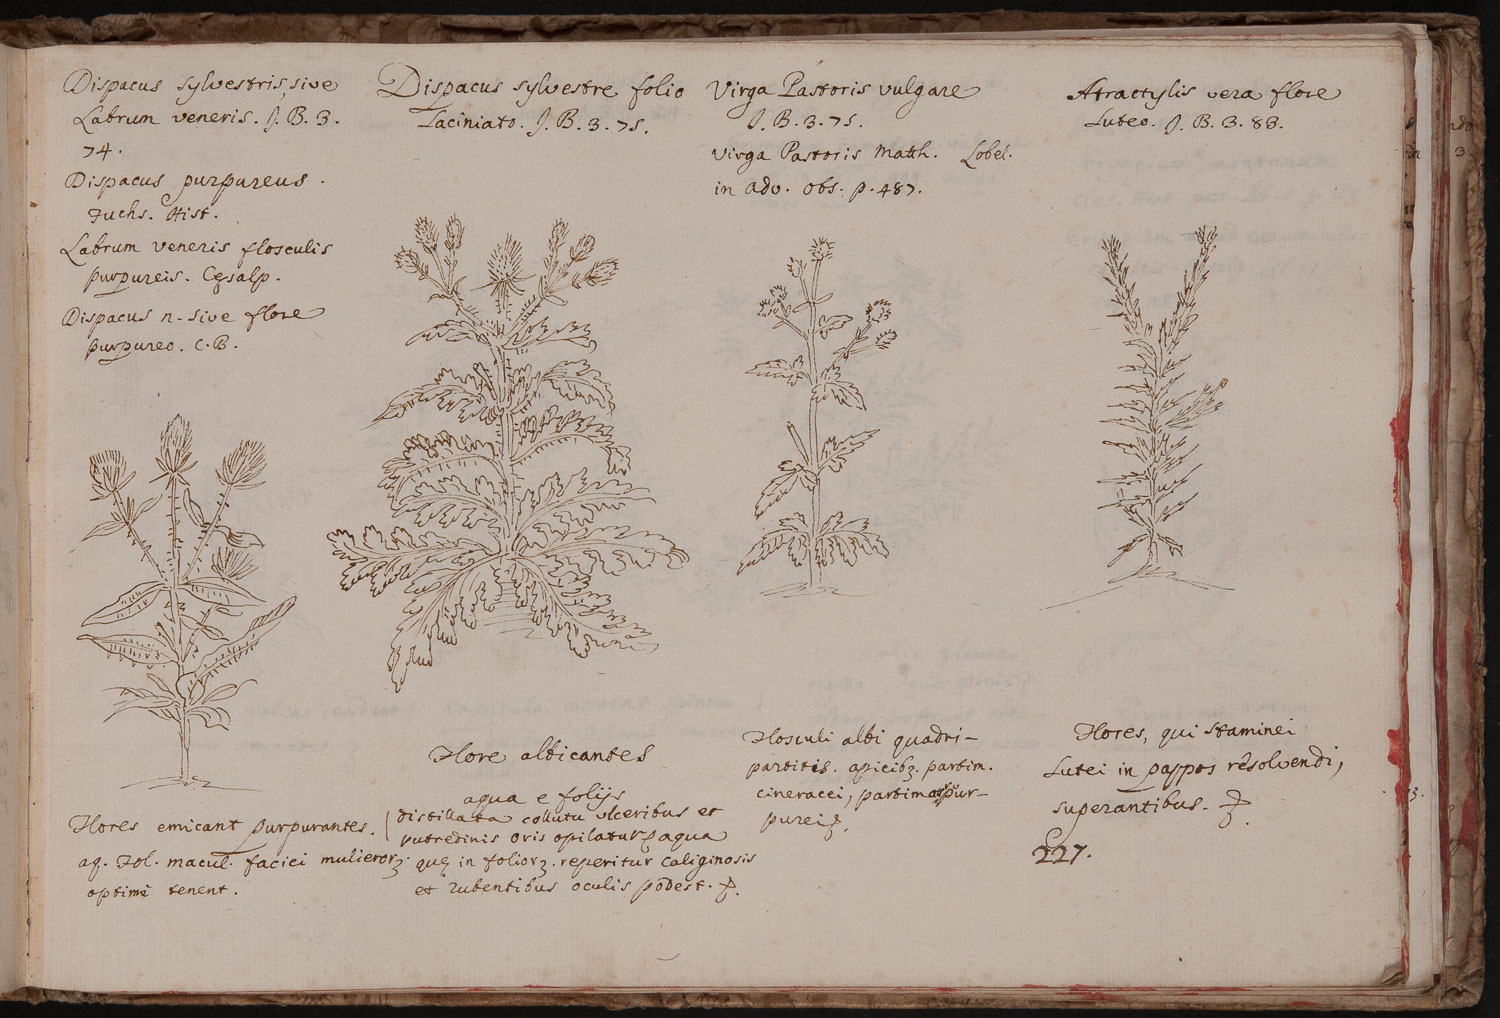 Dispacus sylvestris, sive
Labrum veneris. J. B. 3.
74.
Dispacus purpureus.
Fuchs. Hist.
Labrum veneris flosculis
purpureis. Cęsalp.
Dispacus n- sive flore
purpureo. C. B.
Flores emicant purpurantes.
aq. Fol. macul. faciei mulieorʒ
optimè tenent.
Dispacus sylvestre folio
Laciniato. J. B. 3. 75.
Flore albicantes
aqua e folijs
distillata collutu ulceribus et
putredinis oris opilatur aqua
quę in foliorʒ. reperitur caliginosis
et rubentibus oculis podest.
Virga Pastoris vulgare
J. B. 3. 75.
Virga Pastoris Matth. Lobel.
in adv. obs. p. 487.
Flosculi albi quadri-
partitis. apicibʒ. partim.
cineracei, partim pur-
purei
Atractylis vera flore
Luteo. J. B. 3. 88.
Flores, qui staminei
Lutei in pappos resolvendi,
superantibus.
227.